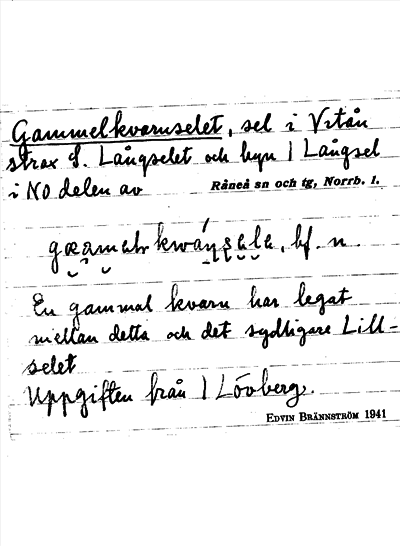 Gammelkvarnselet, sel i Vitån
strax S. Långselet och byn Långsel
i NO delen av Råneå sn och tg, Norrb. l.
bf. n.
En gammal kvarn har legat
mellan detta och det sydligare Lill-
selet
Uppgiften från Lövberg.
EDVIN BRÄNNSTRÖM 1941